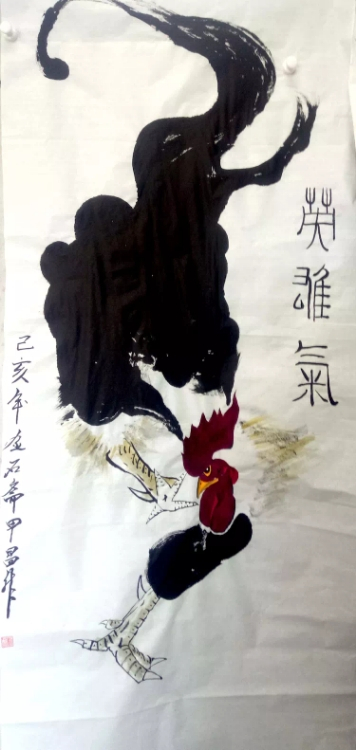 英雄氣
己亥年画石斋甲昌作